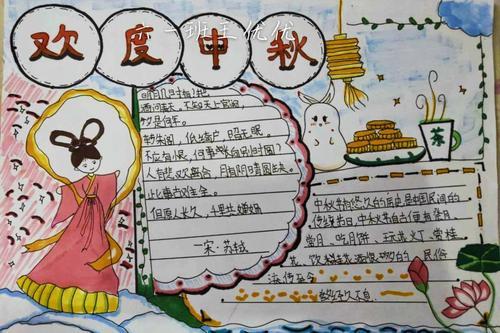 欢度申秋
一一班王优优
明月几时有?把
酒问青天。不知天上宫阙,
今夕是何年。
转朱阁,低绮户,照无眠。
不应有恨,何事长向别时圆?
人有悲欢离合,月有阴晴圆缺,
此事古难全。
但愿人长久,千里共婵娟
—宋·苏轼
茶
中秋节悠久的历史是中国民间的
传统节日,中秋节自古便有祭月、
赏月、吃月饼、玩花灯、赏桂
花、饮桂花酒 民俗
流传至今
经久不息